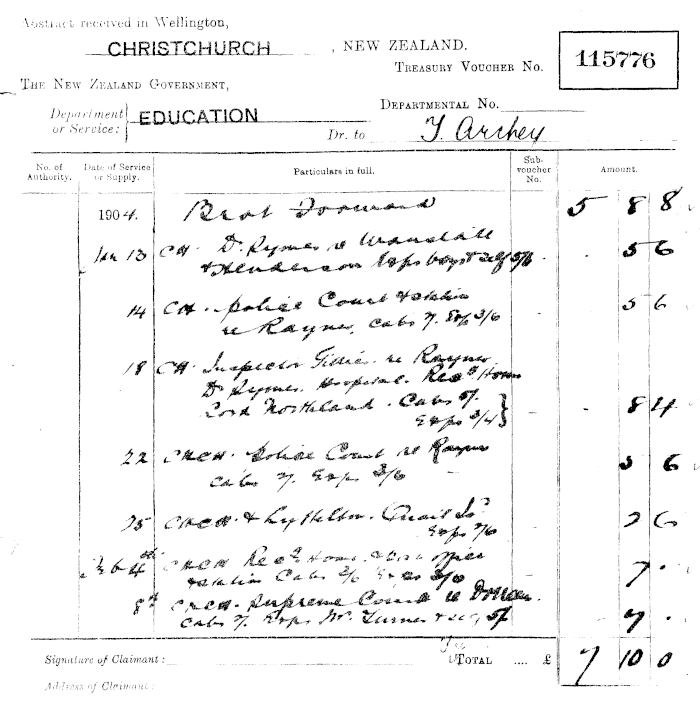 Abstract received in Wellington,
CHRISTCHURCH, NEW ZEALAND.
TREASURY VOUCHER NO. 115776
THE NEW ZEALAND GOVERNMENT,
Department or Service: EDUCATION
DEPARTMENTAL NO.
Dr. to J. Archey
No. of Authority. Date of Service or Supply. Particulars in full. Sub-voucher No. Amount.
1904. Brot Forward 5 8 8
Jan 13 CH. Dr. Symes re
& Henderson Exps boy & self 5/6 5 6
14 CH. Police Court & station
re Rayner, Cabs 2/. Exp 3/6 5 6
18 CH. Inspector Gillies re Rayner
Dr. Symes. Hospital. Recg Home
Lord Northland. Cabs 5/.
Exps 3/4 8 4
22 CHCH. Police Court re Rayner
Cabs 2/. Exps 3/6 5 6
25 CHCH. & Lyttelton. Quail Isd
Exps 7/6 7 6
Feb 4th CHCH Recg Home. office
& station Cabs Exps 7 .
8th CHCH. Supreme Court re
Cabs 2/. Exps Mr. Turner & self 5/ 7 .
Signature of Claimant: TOTAL .... £ 7 10 0
Address of Claimant: